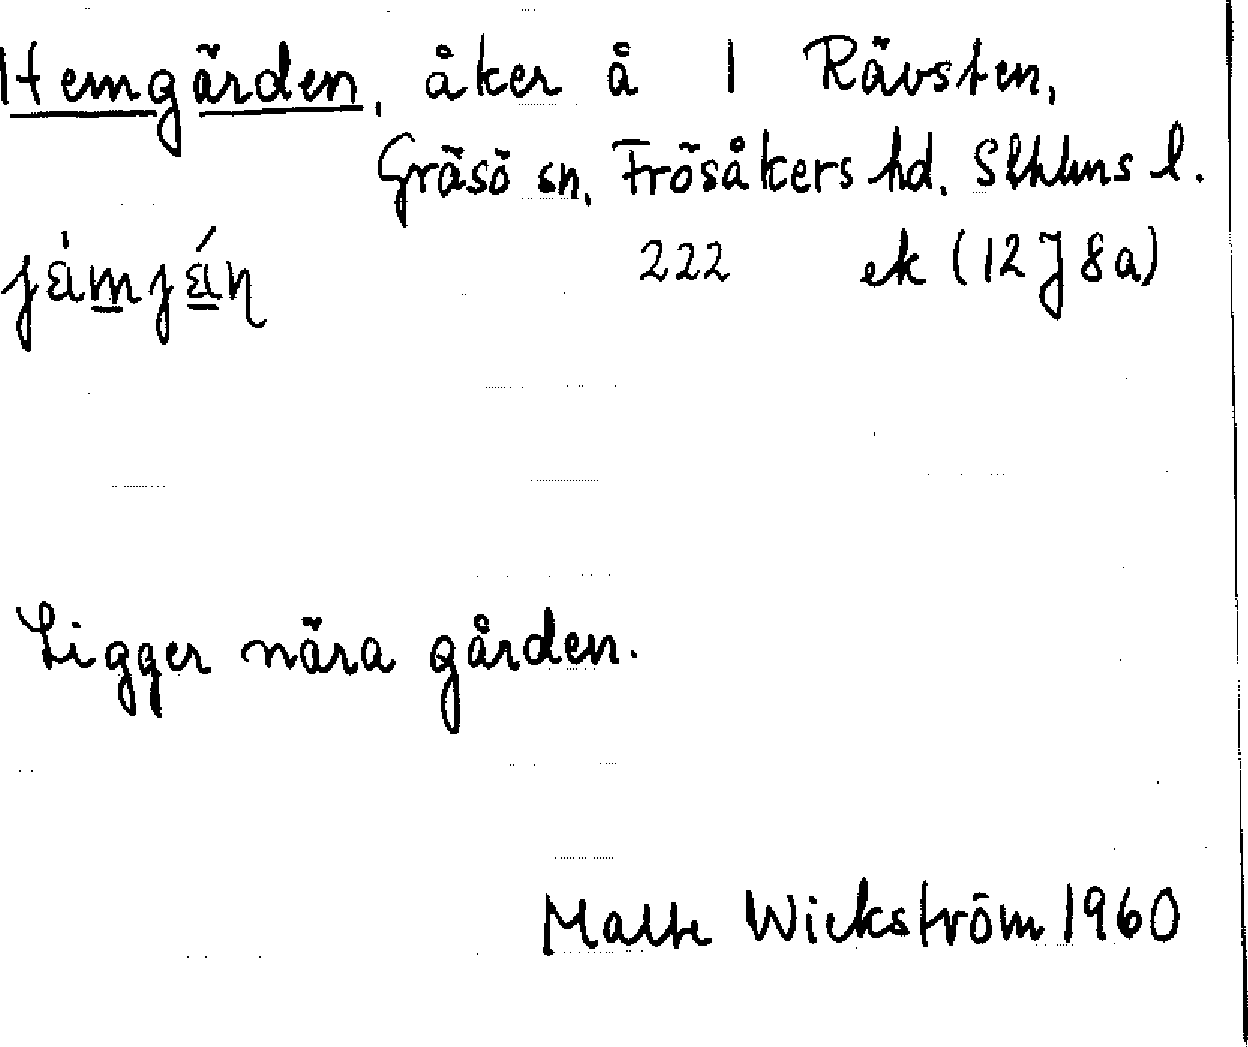 Hemgärden, åker å 1 Rävsten,
Gräsö sn. Frösåkers hd. Sthlms l.
222 ek (12J8a)
Ligger nära gården.
Malte Wickström 1960